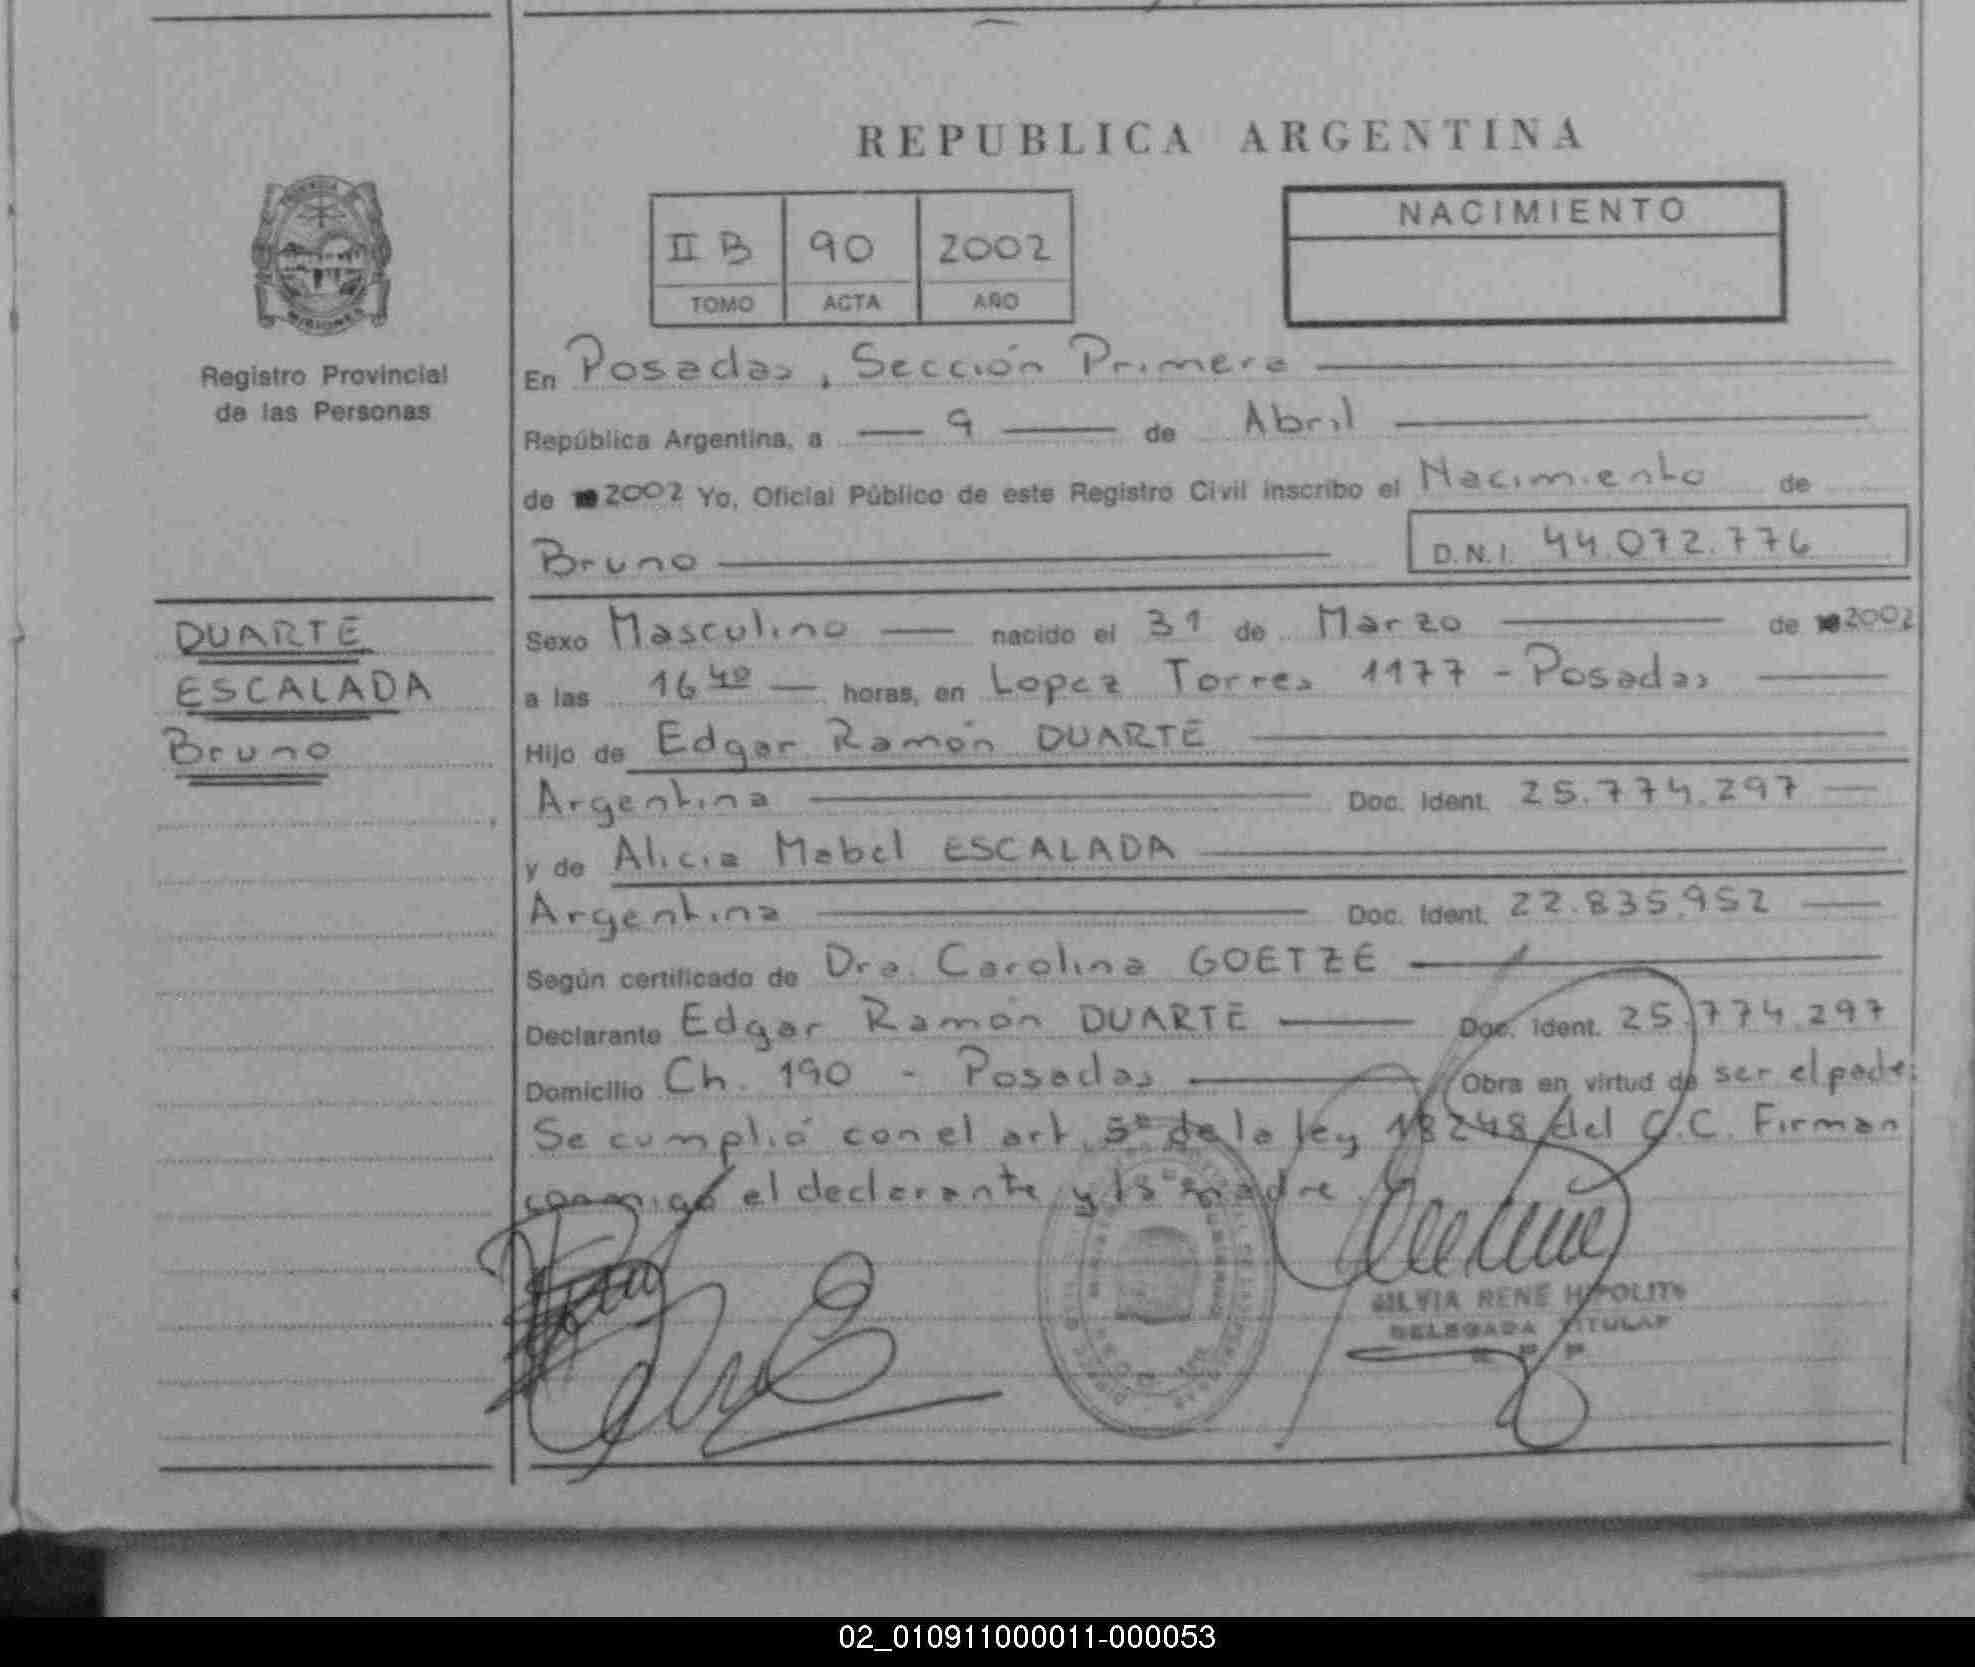 REPUBLICA ARGENTINA
II B 90 2002
TOMO ACTA AÑO
NACIMIENTO
MISIONES
Registro Provincial
de las Personas
DUARTE
ESCALADA
Bruno
En Posadas, Sección Primera
República Argentina, a 9 de Abril
de 2002 Yo, Oficial Público de este Registro Civil inscribo el Nacimiento de
Bruno D.N.I. 44.072.776
Sexo Masculino nacido el 31 de Marzo de 2002
a las 16 40 horas, en Lopez Torres 1177 - Posadas
Hijo de Edgar Ramón DUARTE
Argentina Doc. Ident. 25.774.297
y de Alicia Mabel ESCALADA
Argentina Doc. Ident. 22.835.952
Según certificado de Dra. Carolina GOETZE
Declarante Edgar Ramón DUARTE Doc. Ident. 25.774.297
Domicilio Ch. 190 - Posadas Obra en virtud de ser el padre.
Se cumplió con el art. 5º de la ley 18248 del C.C. Firman
conmigo el declarante y la madre.
SILVIA RENE HIPOLITO
DELEGADA TITULAR
02_010911000011-000053